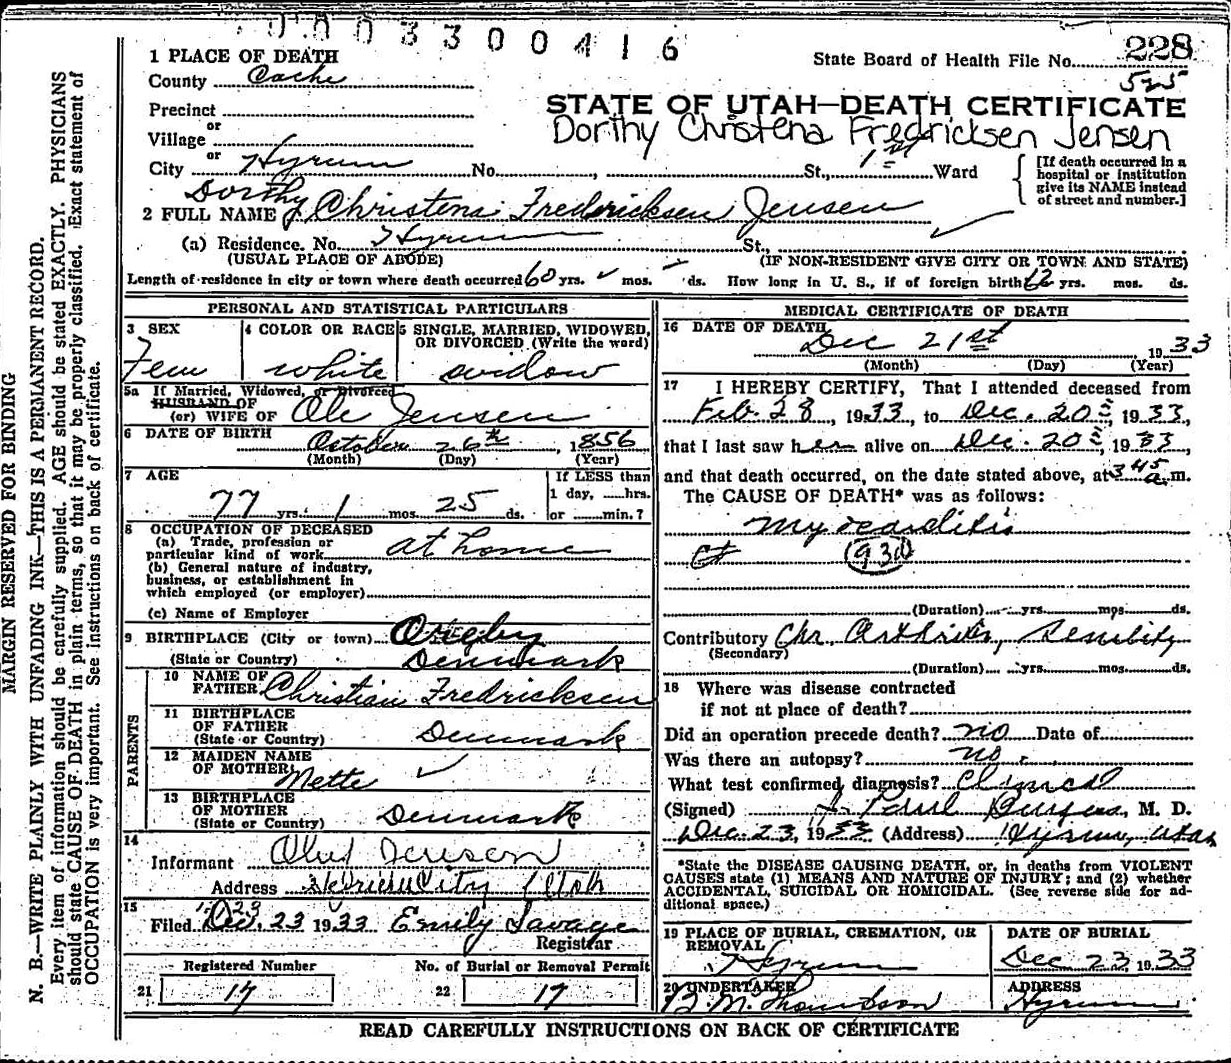 0003300416
1 PLACE OF DEATH
State Board of Health File No. 228
County Cache
525
Precinct
STATE OF UTAH—DEATH CERTIFICATE
or
Village
Dorthy Christena Fredricksen Jensen
or
City Hyrum No. , St., 1st Ward
[If death occurred in a hospital or institution give its NAME instead of street and number.]
Dorthy
2 FULL NAME Christena Fredericksen Jensen
(a) Residence. No. Hyrum St.,
(USUAL PLACE OF ABODE) (IF NON-RESIDENT GIVE CITY OR TOWN AND STATE)
Length of residence in city or town where death occurred 60 yrs. mos. ds. How long in U. S., if of foreign birth 62 yrs. mos. ds.
PERSONAL AND STATISTICAL PARTICULARS
3 SEX 4 COLOR OR RACE 5 SINGLE, MARRIED, WIDOWED, OR DIVORCED (Write the word)
Fem white widow
5a If Married, Widowed, or Divorced
HUSBAND OF
(or) WIFE OF Ole Jensen
6 DATE OF BIRTH
October 26th, 1856
(Month) (Day) (Year)
7 AGE If LESS than
1 day, hrs.
77 yrs. 1 mos. 25 ds. or min.?
8 OCCUPATION OF DECEASED
(a) Trade, profession or
particular kind of work at home
(b) General nature of industry,
business, or establishment in
which employed (or employer)
(c) Name of Employer
9 BIRTHPLACE (City or town)
(State or Country) Denmark
PARENTS
10 NAME OF
FATHER Christian Fredricksen
11 BIRTHPLACE
OF FATHER
(State or Country) Denmark
12 MAIDEN NAME
OF MOTHER Mette
13 BIRTHPLACE
OF MOTHER
(State or Country) Denmark
14
Informant Jensen
Address Hyrum City Utah
15
Filed Dec. 23 1933 Emily Savage
Registrar
Registered Number No. of Burial or Removal Permit
21 17 22 17
MEDICAL CERTIFICATE OF DEATH
16 DATE OF DEATH
Dec 21st 1933
(Month) (Day) (Year)
17 I HEREBY CERTIFY, That I attended deceased from
Feb. 28, 1933, to Dec. 20, 1933,
that I last saw her alive on Dec. 20, 1933
and that death occurred, on the date stated above, at 3 45 a.m.
The CAUSE OF DEATH* was as follows:
Myocarditis
93d
(Duration) yrs. mos. ds.
Contributory Chr. Arthritis, Senility
(Secondary)
(Duration) yrs. mos. ds.
18 Where was disease contracted
if not at place of death?
Did an operation precede death? no Date of
Was there an autopsy? no.
What test confirmed diagnosis? Clinical
(Signed) J. Paul Burgess, M. D.
Dec. 23, 1933 (Address) Hyrum, Utah
*State the DISEASE CAUSING DEATH, or, in deaths from VIOLENT
CAUSES state (1) MEANS AND NATURE OF INJURY; and (2) whether
ACCIDENTAL, SUICIDAL OR HOMICIDAL. (See reverse side for ad-
ditional space.)
19 PLACE OF BURIAL, CREMATION, OR REMOVAL DATE OF BURIAL
Hyrum Dec 23 1933
20 UNDERTAKER ADDRESS
B. M. Thompson Hyrum
READ CAREFULLY INSTRUCTIONS ON BACK OF CERTIFICATE
MARGIN RESERVED FOR BINDING
N. B.—WRITE PLAINLY WITH UNFADING INK—THIS IS A PERMANENT RECORD.
Every item of information should be carefully supplied. AGE should be stated EXACTLY. PHYSICIANS
should state CAUSE OF DEATH in plain terms, so that it may be properly classified. Exact statement of
OCCUPATION is very important. See instructions on back of certificate.